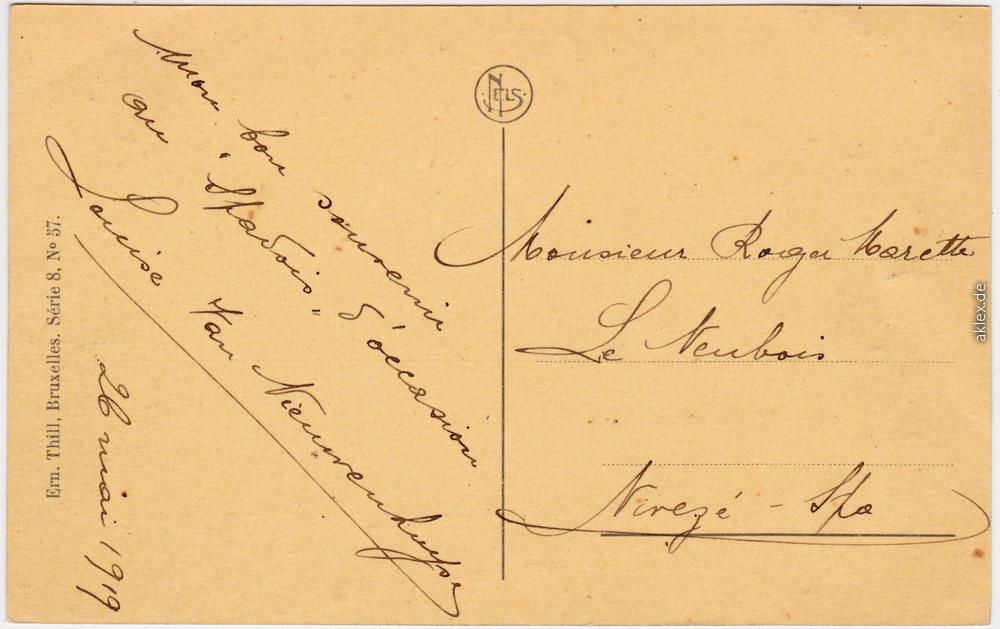 Mon bon souvenir
au "Spadois" d'occasion
Louise Van Nieuwenhuyse
26 mai 1919
Ern. Thill, Bruxelles. Série 8, No 57.
NELS
Monsieur Roger Marette
Le Neubois
Nivezé - Spa
aklex.de